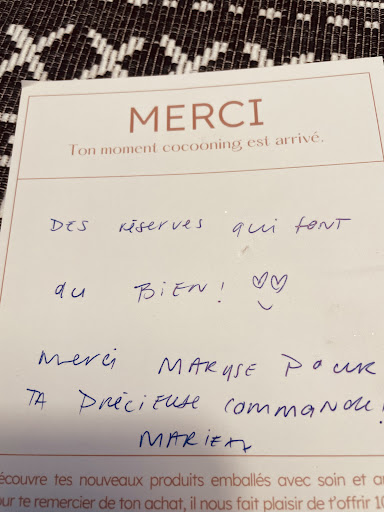 MERCI
Ton moment cocooning est arrivé.
DES réserves qui font
du BIEN!
Merci MARYSE POUR
TA PRÉCIEUSE COMMANDE!
écouvre tes nouveaux produits emballés avec soin et
ur te remercier de ton achat, il nous fait plaisir de t'offrir 10